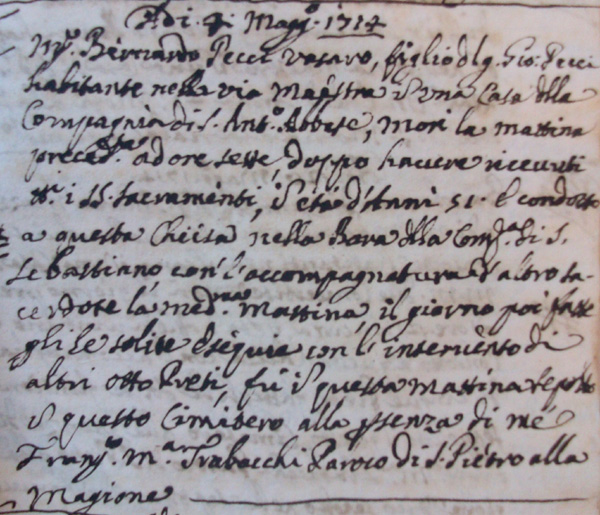 Adi. 4. Magg.º 1714
M.º Bernardo Pecci vasaro, figlio dl q. Gio: Pecci
habitante nella via Maestra i una Casa dlla
Compagnia di S. Ant.º Abbate, morì la mattina
preced.te ad ore sette, doppo havere ricevuti
tt.i i SS. Sacramenti, i età d'Anni 51. e condotto
a questa Chiesa nella Bara dlla Comp.a di S.
Sebastiano con l'accompagnatura d'altro sa-
cerdote la med.ma mattina, il giorno poi fatte
gli le solite Esequie con l'intervèto di
altri otto Preti, fù i questa mattina sepolto
i questo Cimitero alla psenza di me
Franc.º M.a Trabacchi Paroco di S. Pietro alla
Magione